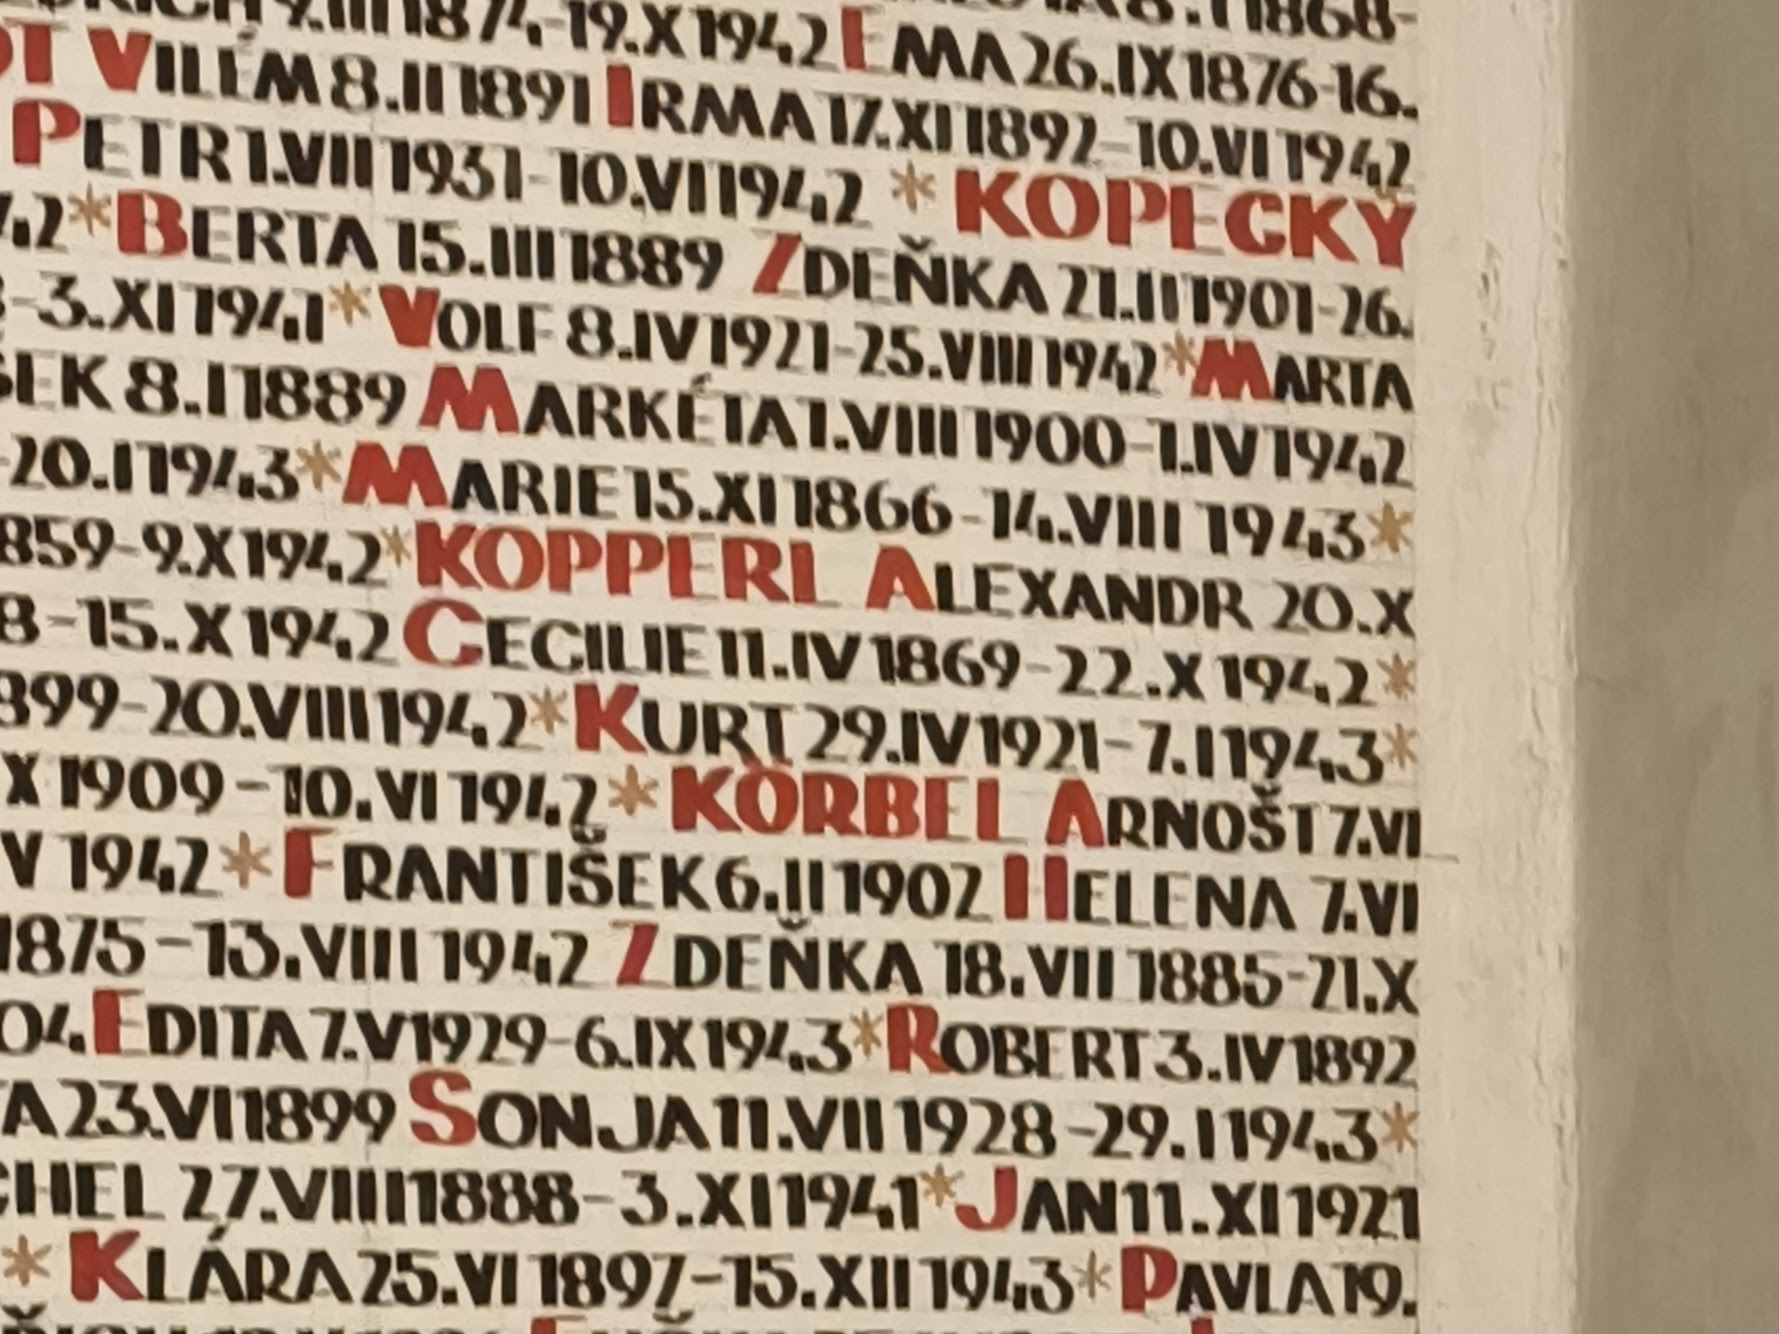 9.III 1874-19.X 1942 EMA 26.IX 1876-16.
VILÉM 8.II 1891 IRMA 17.XI 1892-10.VI 1942
PETR 1.VII 1931-10.VI 1942 * KOPECKÝ
42 * BERTA 15.III 1889 ZDEŇKA 21.II 1901-26.
-3.XI 1941 * VOLF 8.IV 1921-25.VIII 1942 * MARTA
ŠEK 8.I 1889 MARKÉTA 1.VIII 1900-1.IV 1942
-20.I 1943 * MARIE 15.XI 1866-14.VIII 1943 *
859-9.X 1942 * KOPPERL ALEXANDR 20.X
8-15.X 1942 CECILIE 11.IV 1869-22.X 1942 *
899-20.VIII 1942 * KURT 29.IV 1921-7.I 1943 *
X 1909-10.VI 1942 * KÖRBEL ARNOŠT 7.VI
V 1942 * FRANTIŠEK 6.II 1902 HELENA 7.VI
1875-13.VIII 1942 ZDEŇKA 18.VII 1885-21.X
04 EDITA 7.V 1929-6.IX 1943 * ROBERT 3.IV 1892
A 23.VI 1899 SONJA 11.VII 1928-29.I 1943 *
CHEL 27.VIII 1888-3.XI 1941 * JAN 11.XI 1921
* KLÁRA 25.VI 1897-15.XII 1943 * PAVLA 19.